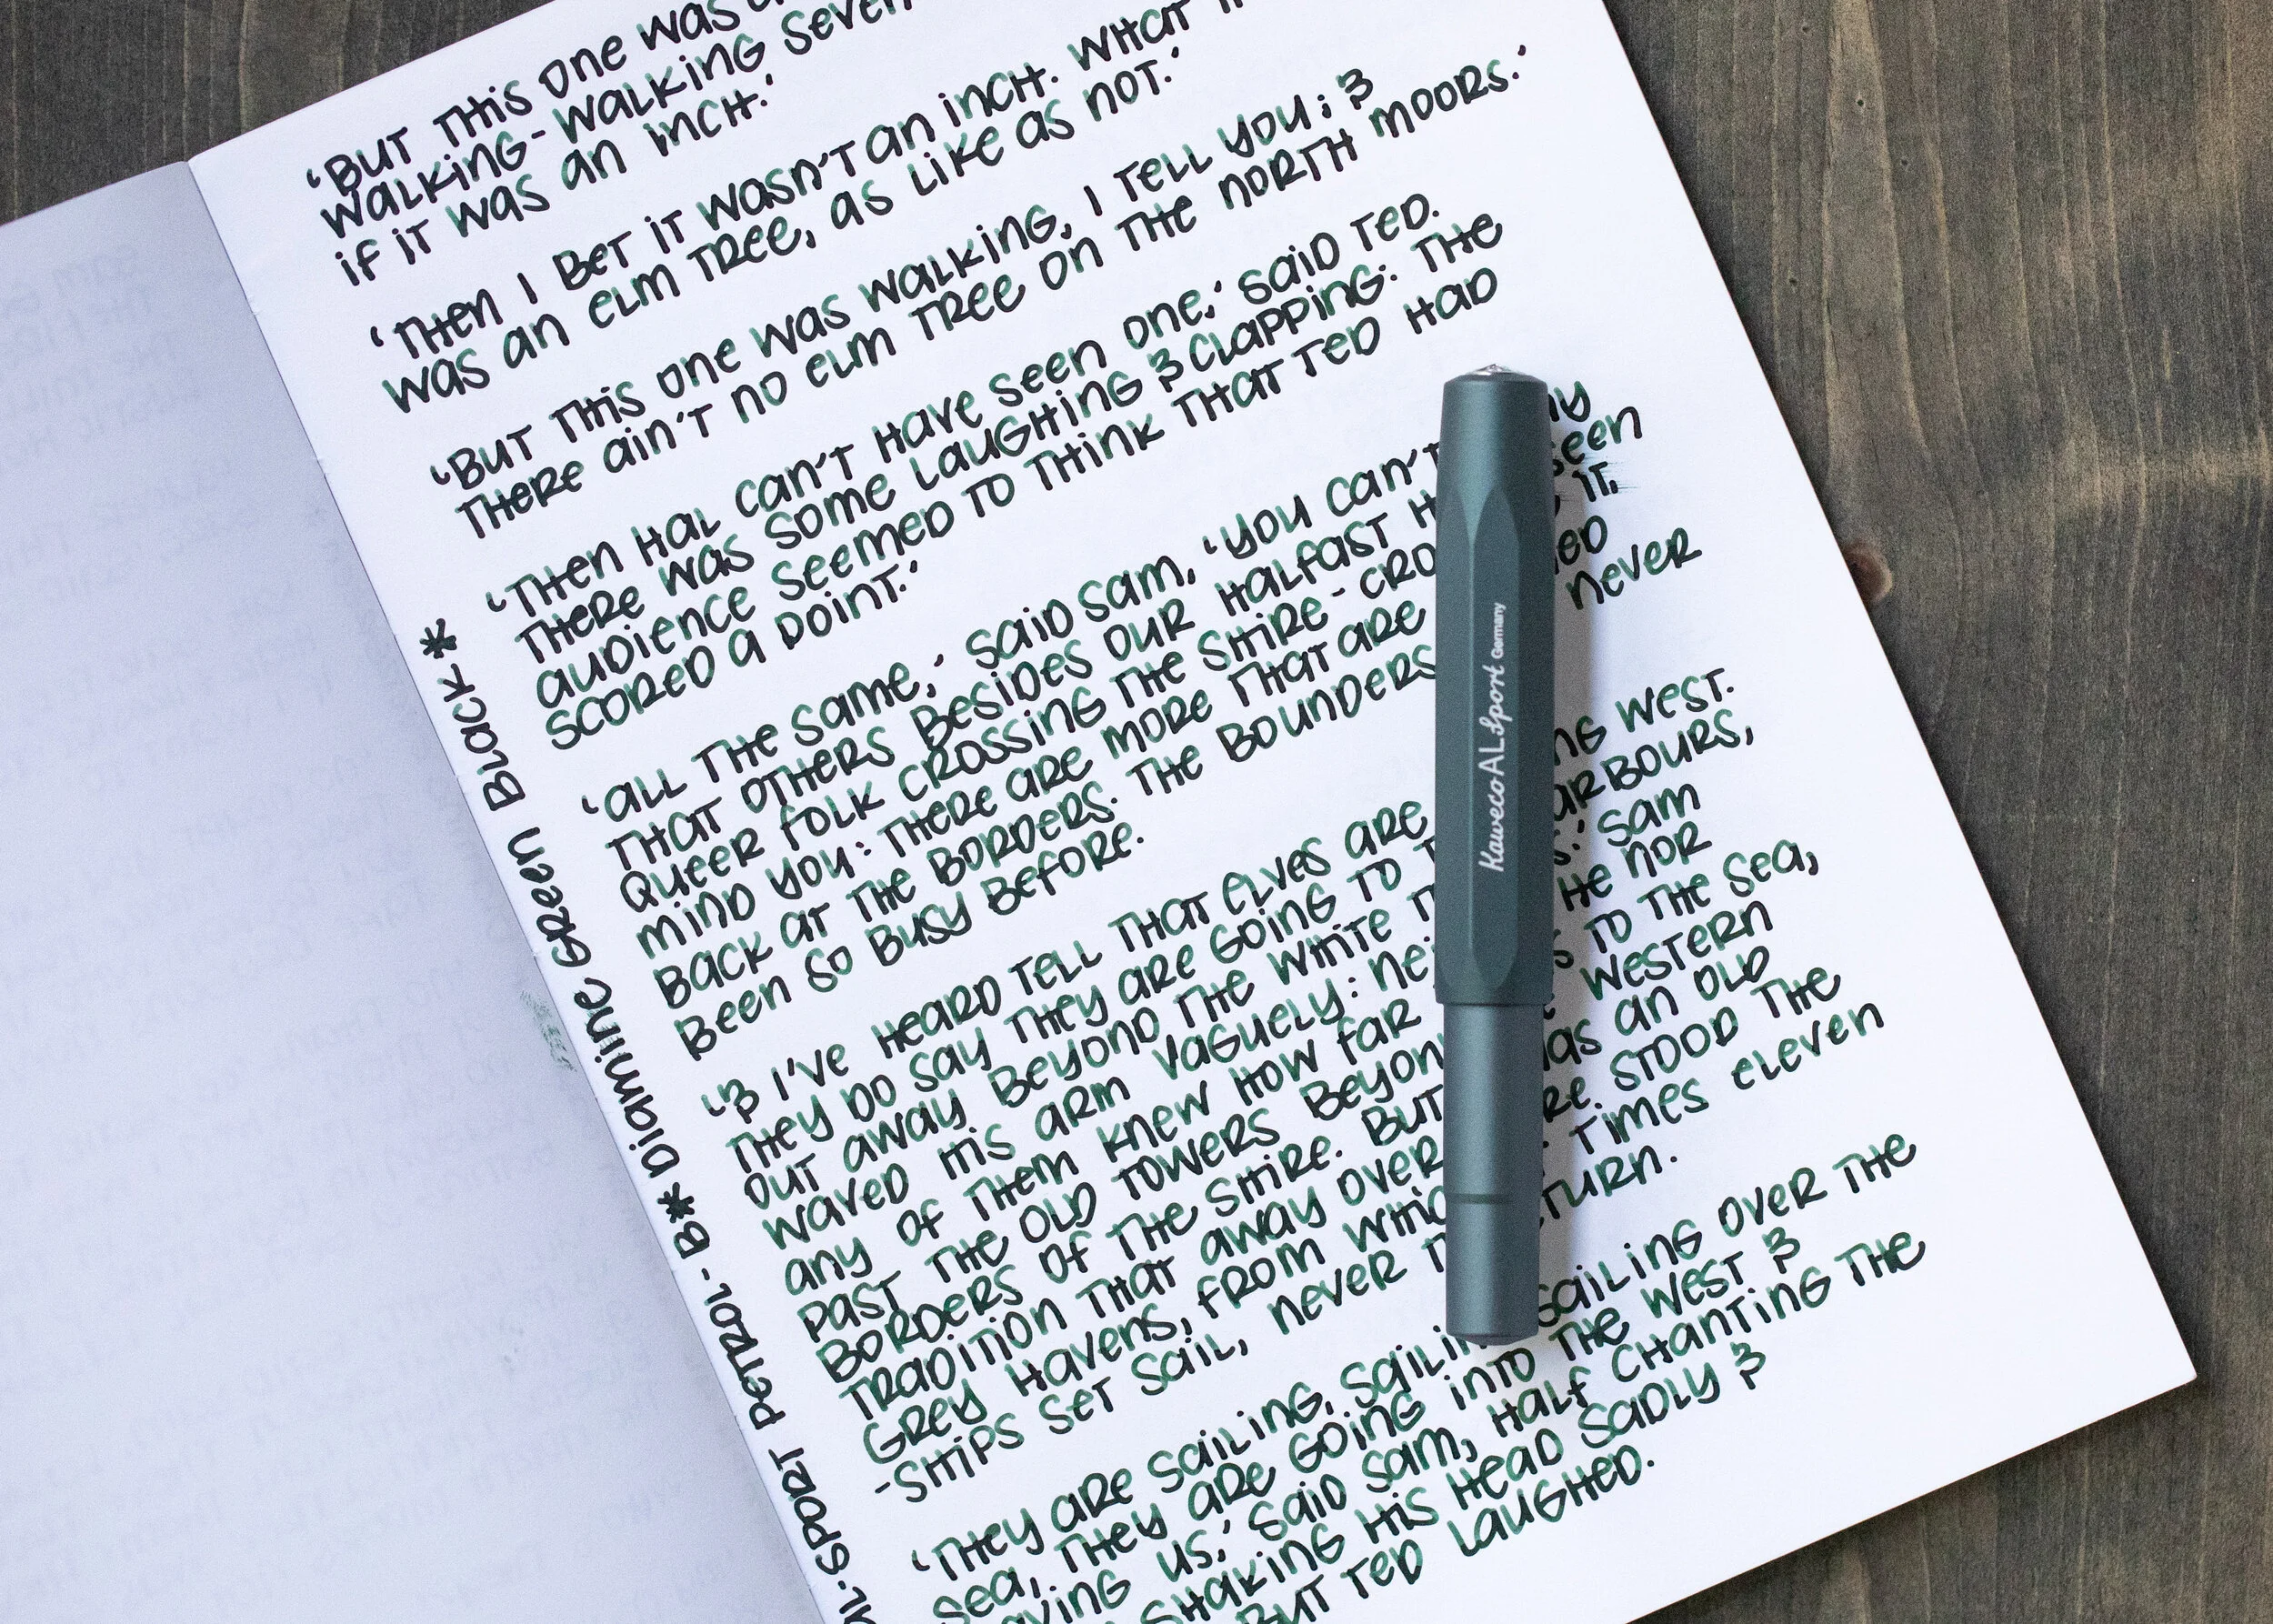 'BUT THIS ONE WAS
WALKING-WALKING SEVEN
IF IT WAS AN INCH.'
'THEN I BET IT WASN'T AN INCH. WHAT
WAS AN ELM TREE, AS LIKE AS NOT.'
'BUT THIS ONE WAS WALKING, I TELL YOU; &
THERE AIN'T NO ELM TREE ON THE NORTH MOORS.'
'THEN HAL CAN'T HAVE SEEN ONE,' SAID TED.
THERE WAS SOME LAUGHING & CLAPPING: THE
AUDIENCE SEEMED TO THINK THAT TED HAD
SCORED A POINT.'
'ALL THE SAME,' SAID SAM, 'YOU CAN'T
THAT OTHERS BESIDES OUR HALFAST SEEN
QUEER FOLK CROSSING THE SHIRE-CRO IT,
MIND YOU: THERE ARE MORE THAT ARE
BACK AT THE BORDERS. THE BOUNDERS NEVER
BEEN SO BUSY BEFORE.
'& I'VE HEARD TELL THAT ELVES ARE WEST.
THEY DO SAY THEY ARE GOING TO ARBOURS,
OUT AWAY BEYOND THE WHITE SAM
WAVED HIS ARM VAGUELY: NEI HE NOR
ANY OF THEM KNEW HOW FAR TO THE SEA,
PAST THE OLD TOWERS BEYON WESTERN
BORDERS OF THE SHIRE. BUT AN OLD
TRADITION THAT AWAY OVER RE STOOD THE
GREY HAVENS, FROM WHIC TIMES ELEVEN
-SHIPS SET SAIL, NEVER TURN.
'THEY ARE SAILING, SAILIN SAILING OVER THE
SEA, THEY ARE GOING INTO THE WEST &
AVING US,' SAID SAM, HALF CHANTING THE
SHAKING HIS HEAD SADLY &
BUT TED LAUGHED.
AL-SPORT PETROL - B* DIAMINE GREEN BLACK *
Kaweco AL Sport Germany